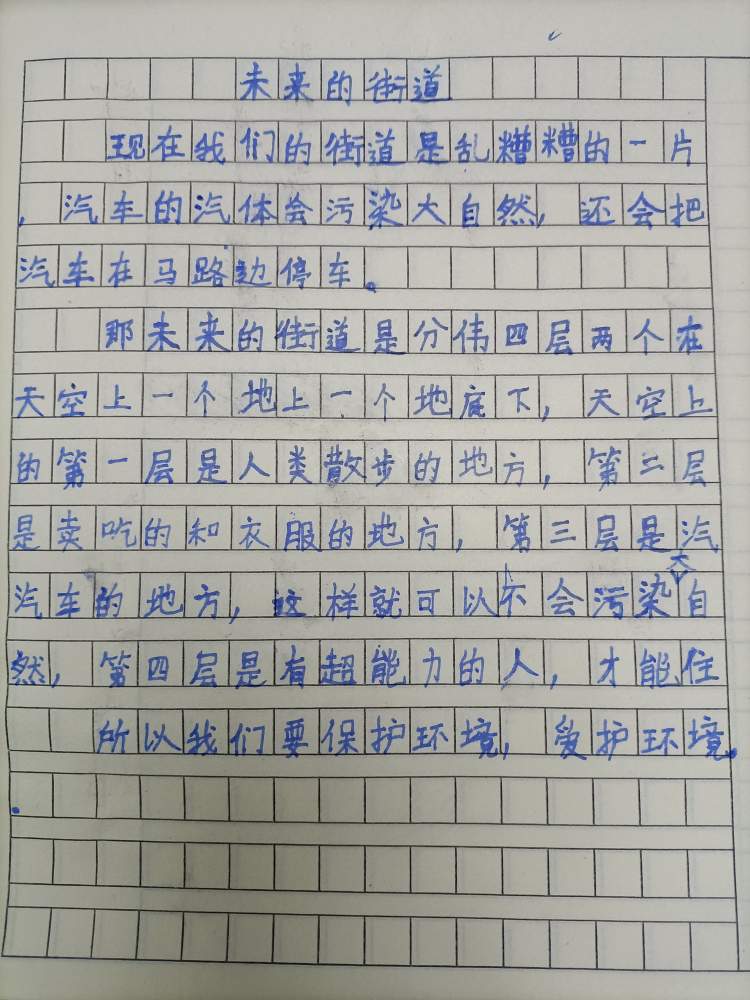 未来的街道
现在我们的街道是乱糟糟的一片
，汽车的汽体会污染大自然，还会把
汽车在马路边停车。
那未来的街道是分伟四层两个在
天空上一个地上一个地底下，天空上
的第一层是人类散步的地方，第二层
是卖吃的和衣服的地方，第三层是汽
汽车的地方，这样就可以不会污染大自
然，第四层是有超能力的人，才能住
所以我们要保护环境，爱护环境。
。